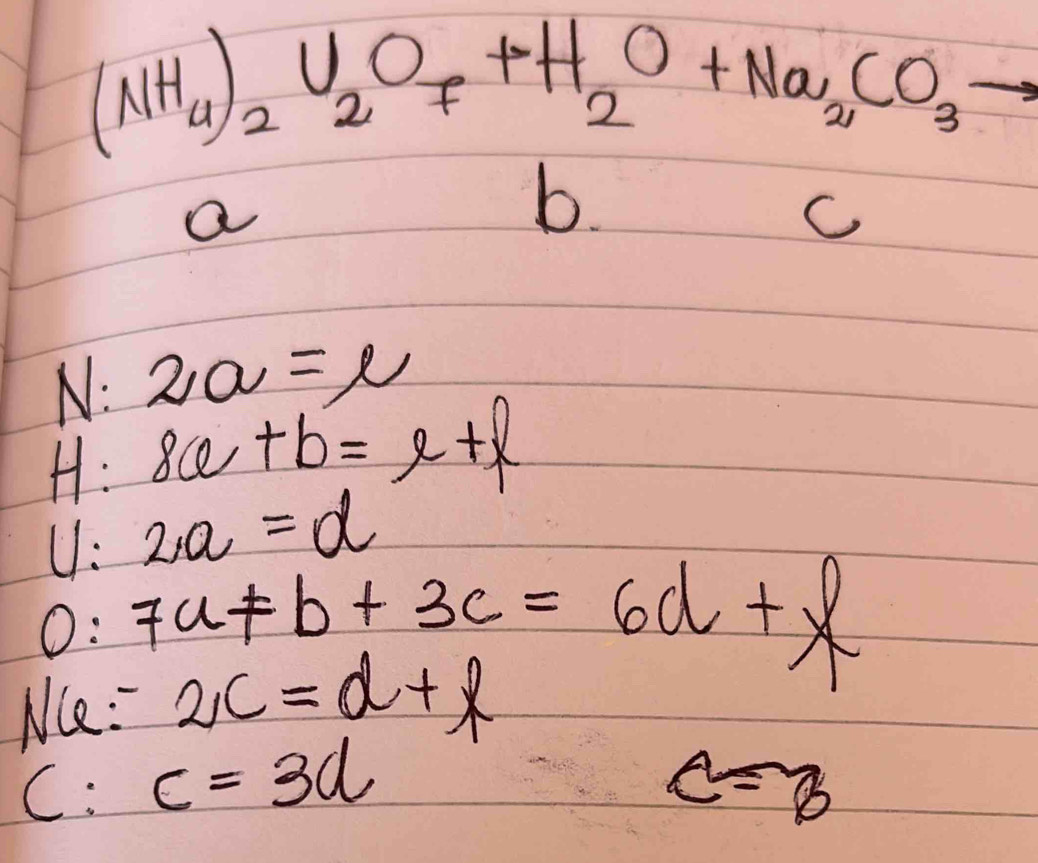 (NH₄)₂ U₂O₇ + H₂O + Na₂CO₃ →
a b. c
N: 2a = e
H: 8a + b = e + f
U: 2a = d
O: 7a + b + 3c = 6d + f
Na: 2c = d + f
C: c = 3d